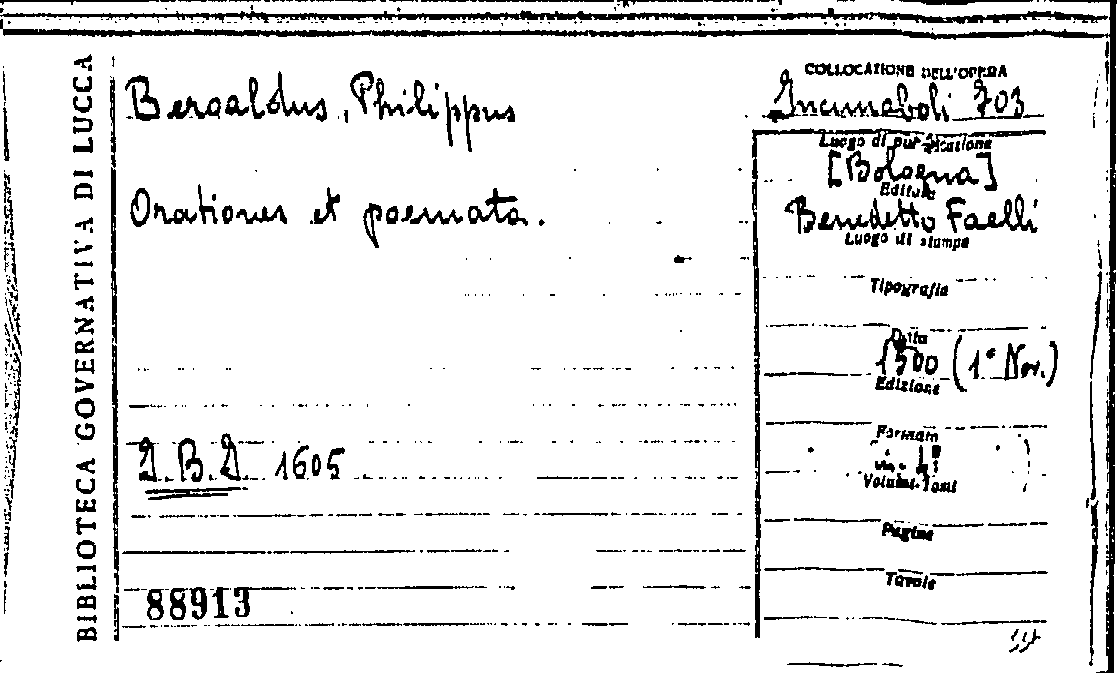 BIBLIOTECA GOVERNATIVA DI LUCCA
Beroaldus, Philippus
Orationes et poemata.
I.B.I. 1605
88913
COLLOCAZIONE DELL'OPERA
Incunaboli 703
Luogo di pubblicazione
[Bologna]
Editore
Benedetto Faelli
Luogo di stampa
Tipografia
Data
1500 (1° Nov.)
Edizione
Formato
Volumi-Tomi
Pagine
Tavole